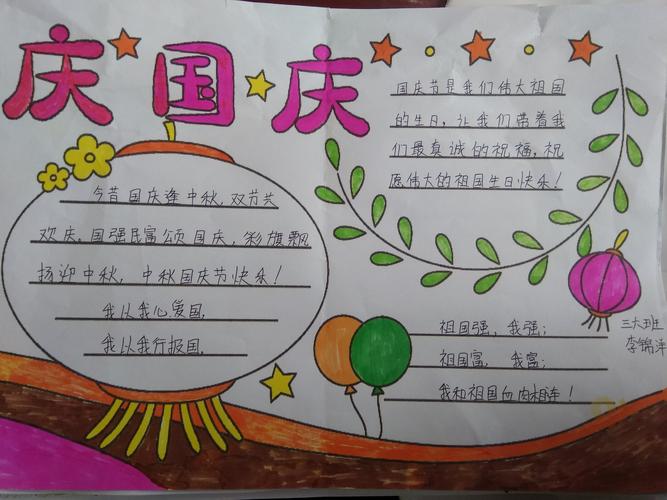 庆国庆
国庆节是我们伟大祖国
的生日，让我们带着我
们最真诚的祝福，祝
愿伟大的祖国生日快乐！
今昔国庆逢中秋，双节共
欢庆，国强民富颂国庆，彩旗飘
扬迎中秋，中秋国庆节快乐！
我以我心爱国，
我以我行报国，
祖国强，我强；
祖国富，我富；
我和祖国血肉相连！
三大班
李锦洋